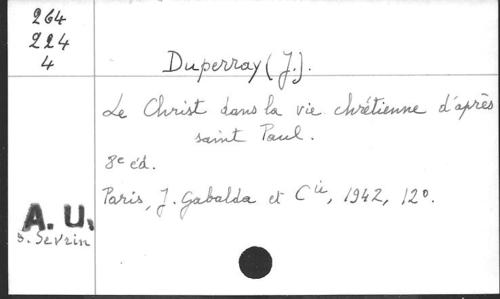 264
224
4
Duperray (J.).
Le Christ dans la vie chrétienne d'après
saint Paul.
8e éd.
Paris, J. Gabalda et Cie, 1942, 12º.
A. U.
s. Sevrin